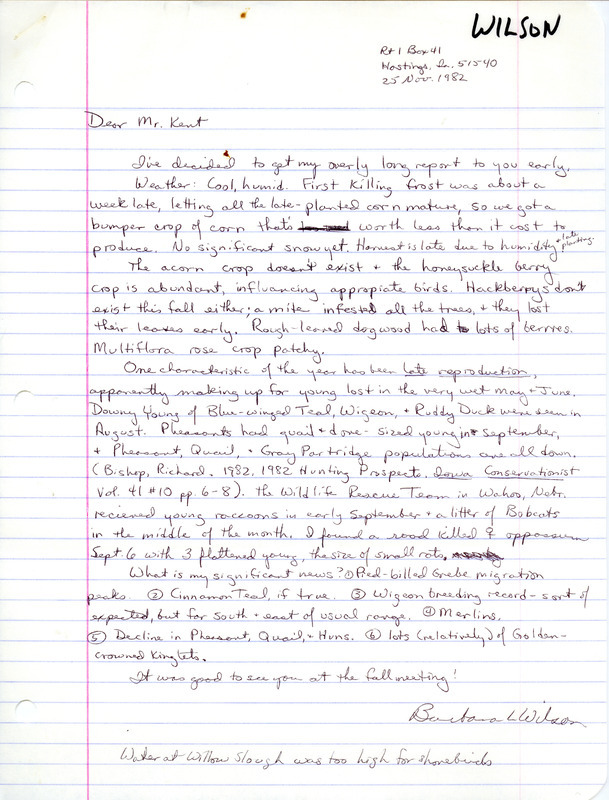 WILSON
Rt 1 Box 41
Hastings, Ia. 51540
25 Nov. 1982
Dear Mr. Kent
I've decided to get my overly long report to you early.
Weather: Cool, humid. First killing frost was about a
week late, letting all the late-planted corn mature, so we got a
bumper crop of corn that's worth less than it cost to
produce. No significant snow yet. Harvest is late due to humidity + late planting.
The acorn crop doesn't exist + the honeysuckle berry
crop is abundant, influencing appropiate birds. Hackberrys don't
exist this fall either; a mite infested all the trees, + they lost
their leaves early. Rough-leaved dogwood had lots of berries.
Multiflora rose crop patchy.
One characteristic of the year has been late reproduction,
apparently making up for young lost in the very wet May + June.
Downy young of Blue-winged Teal, Wigeon, + Ruddy Duck were seen in
August. Pheasants had quail + dove-sized young in September,
+ Pheasant, Quail, + Gray Partridge populations are all down.
(Bishop, Richard. 1982. 1982 Hunting Prospects. Iowa Conservationist
Vol. 41 #10 pp. 6-8). The Wildlife Rescue Team in Wahoo, Nebr.
recieved young raccoons in early September + a litter of Bobcats
in the middle of the month. I found a road killed ♀ oppossum
Sept 6 with 3 flattened young, the size of small rats.
What is my significant news? ① Pied-billed Grebe migration
peaks. ② Cinnamon Teal, if true. ③ Wigeon breeding record - sort of
expected, but far south + east of usual range. ④ Merlins.
⑤ Decline in Pheasant, Quail, + Huns. ⑥ lots (relatively) of Golden-
crowned Kinglets.
It was good to see you at the fall meeting!
Barbara L Wilson
Water at Willow Slough was too high for shorebirds